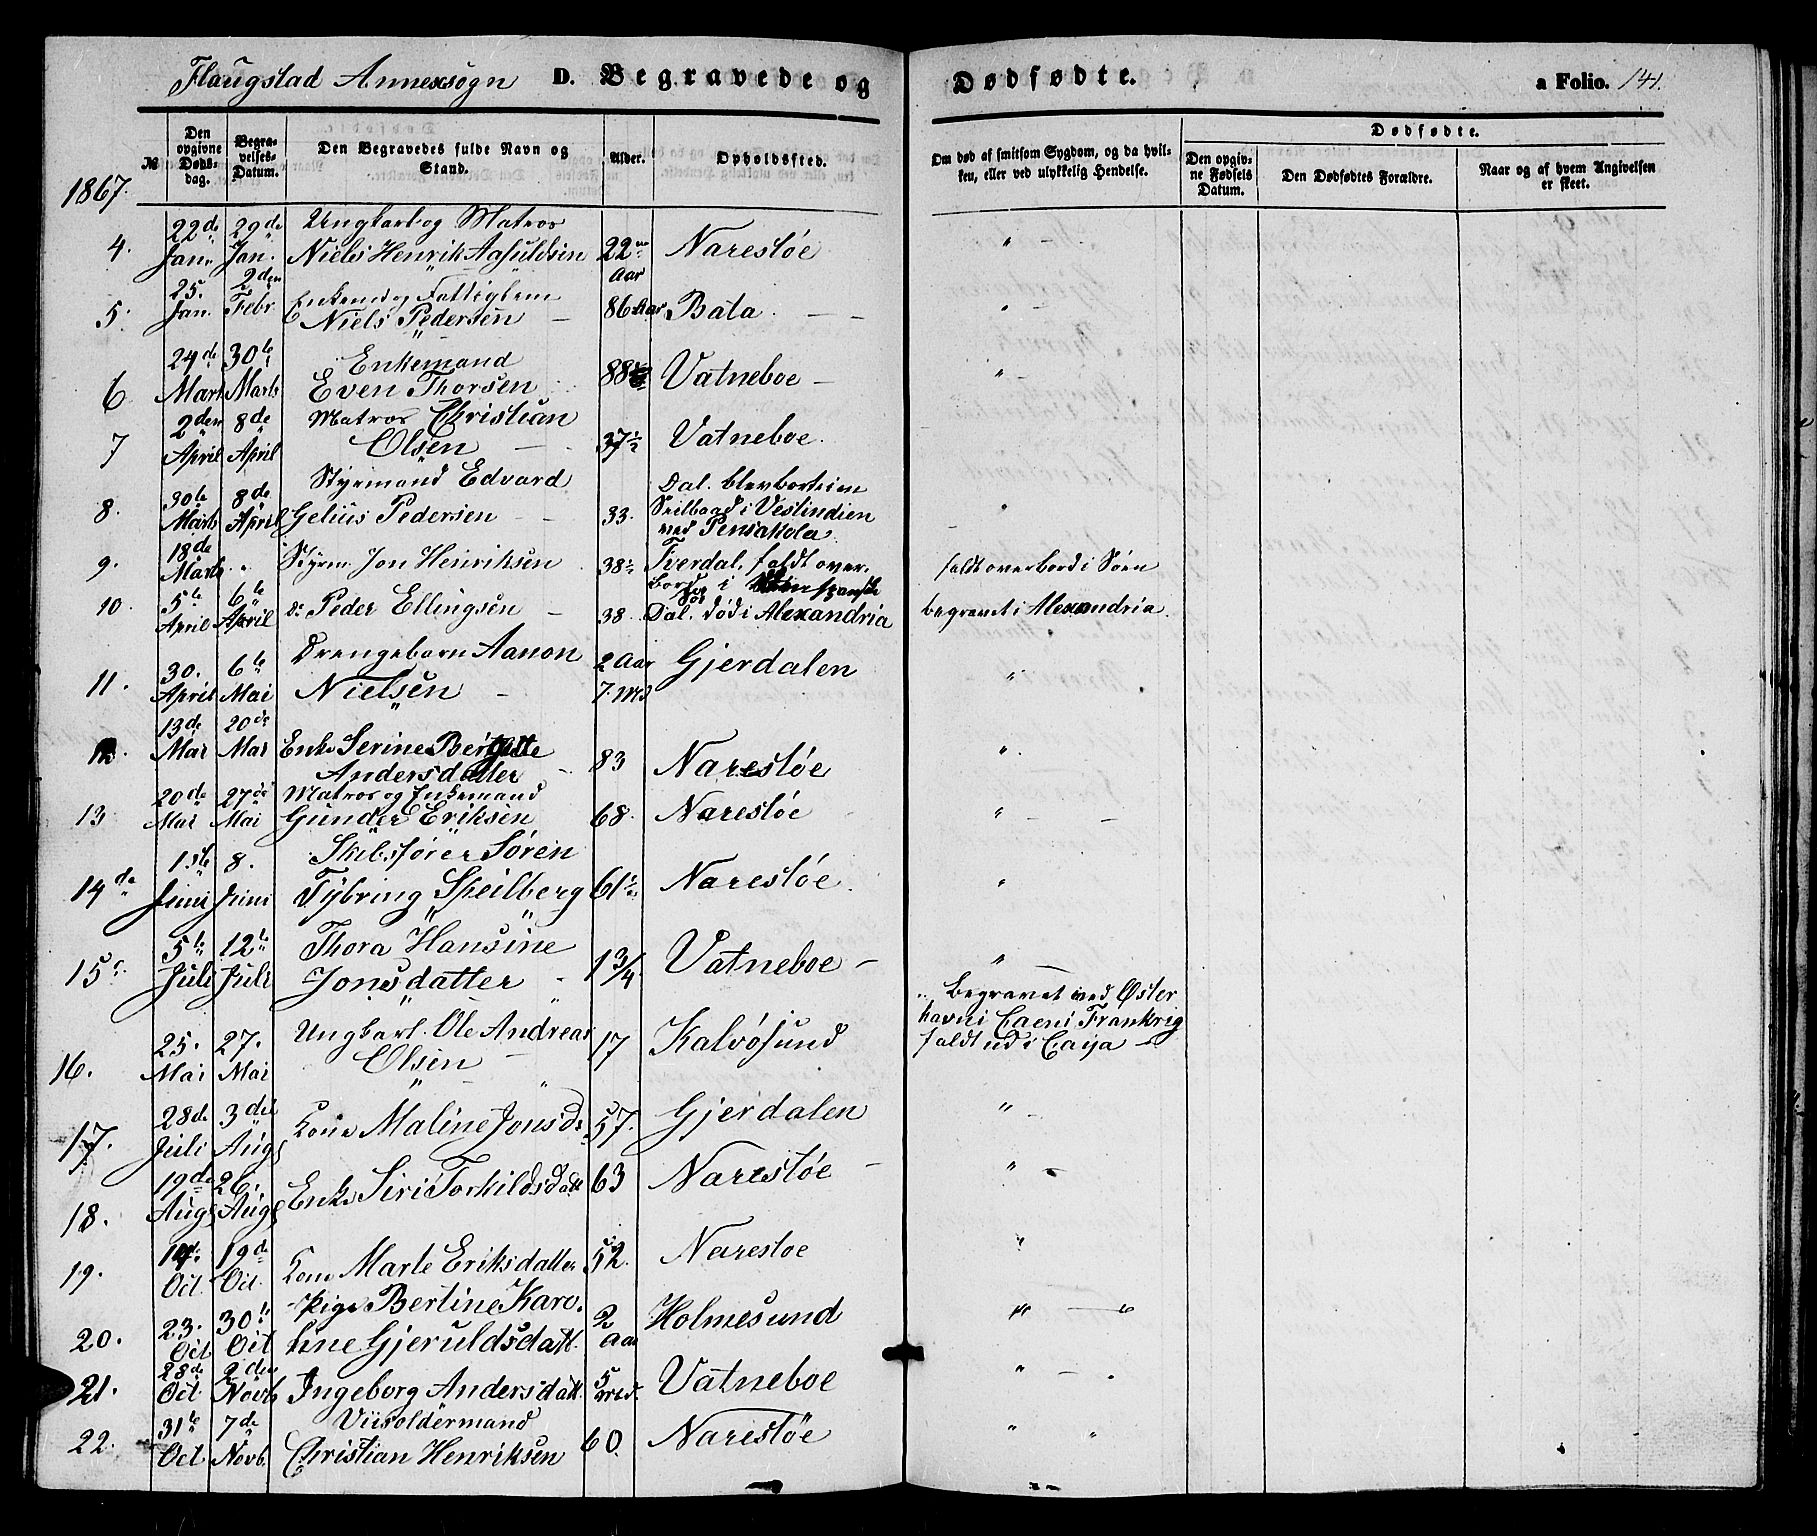 Flaugstad Annexsogn D. Begravede og Dødfødte. a Folio. 141.
1867.
№
Den opgivne Døds-dag.
Begra-velses-Datum.
Den Begravedes fulde Navn og Stand.
Alder.
Opholdssted.
Om død af smitsom Sygdom, og da hvil-ken, eller ved ulykkelig Hendelse.
Dødfødte.
Den opgiv-ne Fødsels Datum.
Den Dødfødtes Forældre.
Naar og af hvem Angivelsen er skeet.
22de 29de Ungkarl og Matros
4. Jan. Jan. Niels Henrik Aasuldsen 22 Aar Narestøe "
25. 2den Enkemd og Fattiglem
5. Jan. Febr Niels Pedersen 86 Aar Bata. "
24de 30te Enkemand
6 Marts Marts Even Thorsen 88 Vatneboe "
2den 8de Matros Christian
7 April April Olsen 37½ Vatneboe.
30te 8de Styrmand Edvard Dal. blev borte i en
8. Marts April Gelius Pedersen 33. Seilbaad i Vestindien "
ved Pensakola
18de
9. Marts " Styrm Jon Henriksen 38½ Tverdal, faldt over- faldt overbord i Søen
bord i spanske
5te 6te Sø
10. April April do Peder Ellingsen 38. Dal. død i Alexandria begravet i Alexandria.
30. 6te Drengebarn Aanon 2 Aar
11. April Mai Nielsen 7. Md Gjerdalen "
13de 20de
12. Mai Mai Enke Serine Bergitte 83 Narestøe "
Andersdatter
20de 27de Matros og Enkemand
13 Mai Mai Gunder Eriksen 68. Narestøe "
1ste 8. Skibsfører Søren
14de Juni Juni Tybring Speilberg 61½ Narestøe. "
5te 12te Thora Hansine
15 Juli Juli Jonsdatter 1 3/4 Vatneboe "
25. 27. Ungkarl. Ole Andreas begravet ved Øster
16. Mai Mai Olsen 17 Kalvøsund havn i Caen i Frankrig
faldt ud i Caija
28de 3die
17. Juli Augs Kone Maline Jonsd. 57. Gjerdalen "
19de 26.
18. Augs Augs Enke Siri Torkildsdatt 63 Narestøe "
14de 19de
19. Oct. Oct. Kone Marte Eriksdatter 52. Narestøe "
23. 30te Pige Bertine Karo-
20. Oct Oct line Gjeruldsdatt. 2 Aar Holmesund " "
28de 2den
21. Oct. Novb Ingeborg Andersdatt. 5 Vatneboe "
31te 7de
22. Oct Novb. Christian Henriksen 60. Narestøe " "